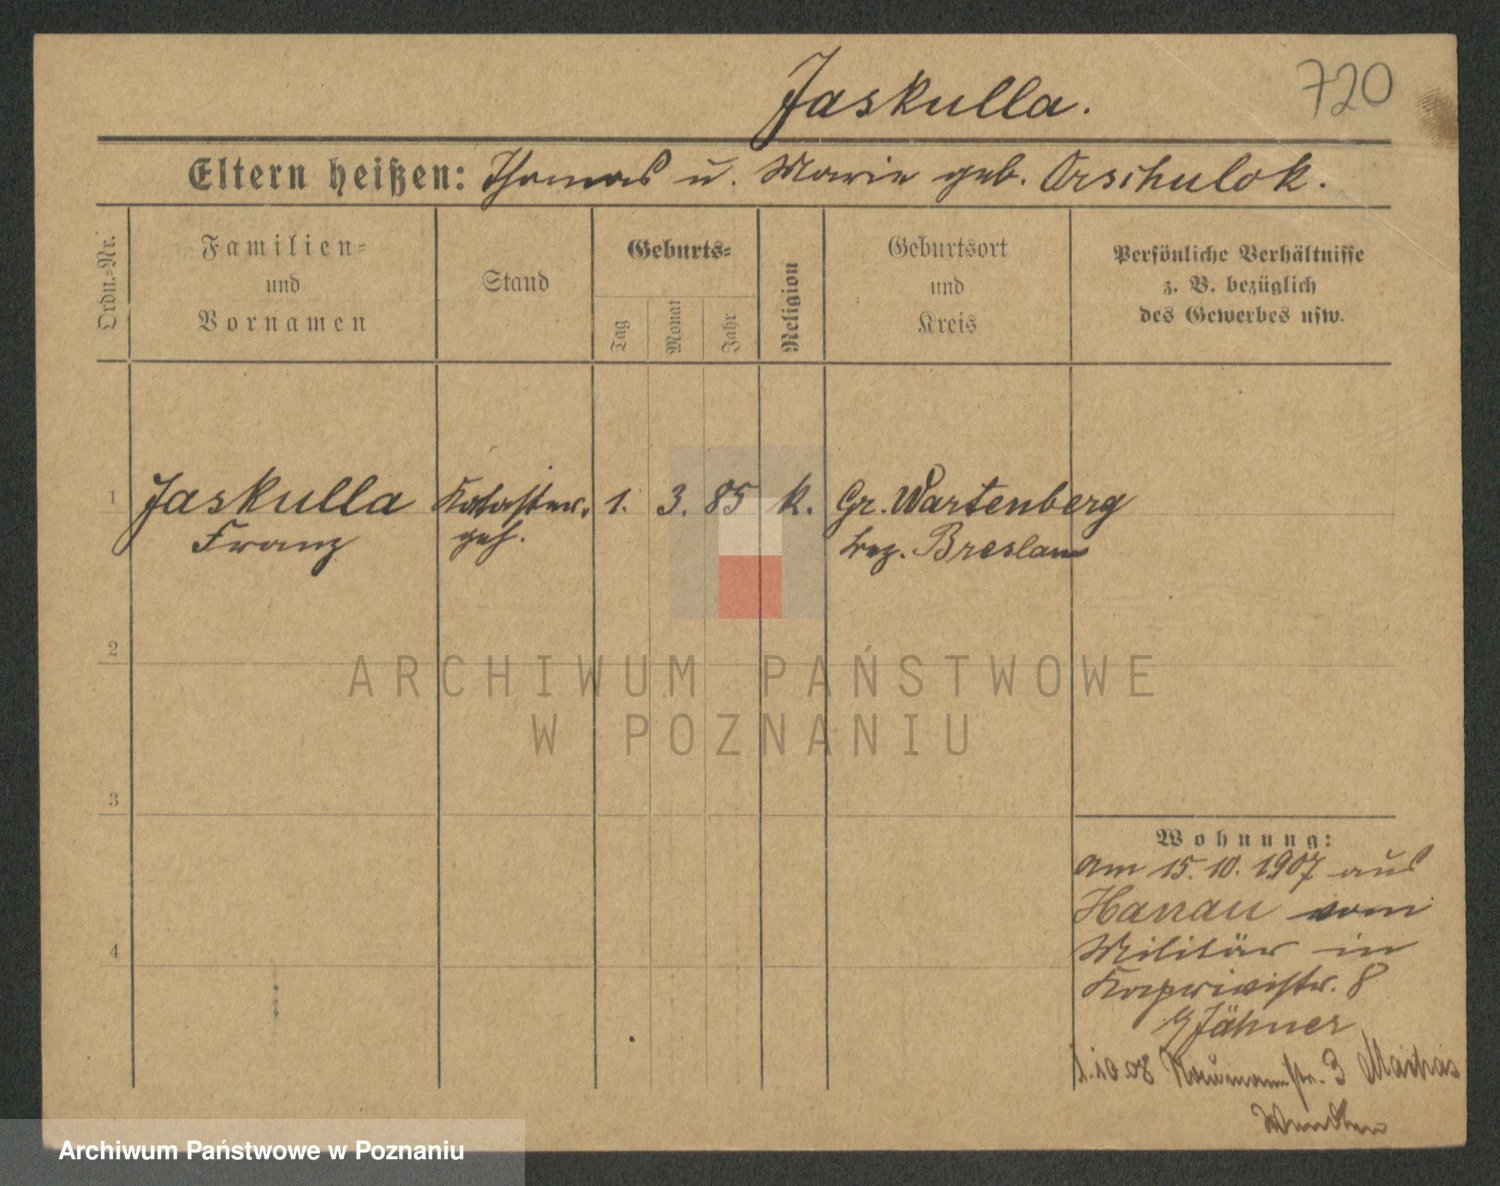 Jaskulla.
720
Eltern heißen: Thomas u. Marie geb. Orschulok.
Ordn.=Nr.
Familien=
und
Vornamen
Stand
Geburts=
Tag
Monat
Jahr
Religion
Geburtsort
und
Kreis
Persönliche Verhältnisse
z. B. bezüglich
des Gewerbes usw.
1 Jaskulla Kataster. 1. 3. 85 k. Gr. Wartenberg
Franz geh. bez. Breslau
2
ARCHIWUM PAŃSTWOWE
W POZNANIU
3
Wohnung:
am 15.10.1907 aus
Hanau vom
Militär in
4
Kaprivistr. 8
Jähner
1.10.08 Naumannstr. 3
Archiwum Państwowe w Poznaniu